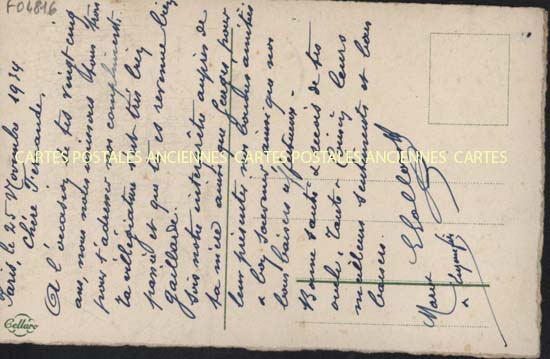 F04816
Paris, le 25 Novembre 1934
Chère Fernande,
A l'occasion de tes vingt cinq
ans, nous nous unissons tous trois
pour t'adresser nos compliments.
Ta villégiature s'est très bien
passée et que tu es revenue bien
gaillarde.
Sois notre interprète auprès de
ta mère ainsi que Georges, pour
leur présenter nos bonnes amitiés
& bon souvenir ainsi que nos
bons baisers affectueux.
Bonne santé. Reçois de tes
oncle, Tante & Cousin leurs
meilleurs sentiments et bons
baisers.
Marie
&
CARTES POSTALES ANCIENNES CARTES POSTALES ANCIENNES CARTES POSTALES ANCIENNES
Cellaro